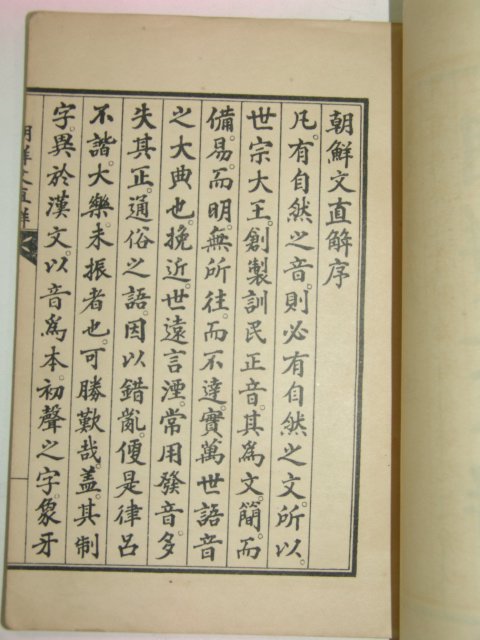 朝鮮文直解序
凡。有自然之音。則必有自然之文。所以。
世宗大王。創製訓民正音。其為文。簡。而
備。易。而明。無所往。而不達。實萬世語音
之大典也。挽近。世遠言湮。常用發音。多
失其正。通俗之語。因以錯亂。便是律呂
不諧。大樂。未振者也。可勝歎哉。蓋。其制
字。異於漢文。以音爲本。初聲之字。象牙
朝鮮文直解